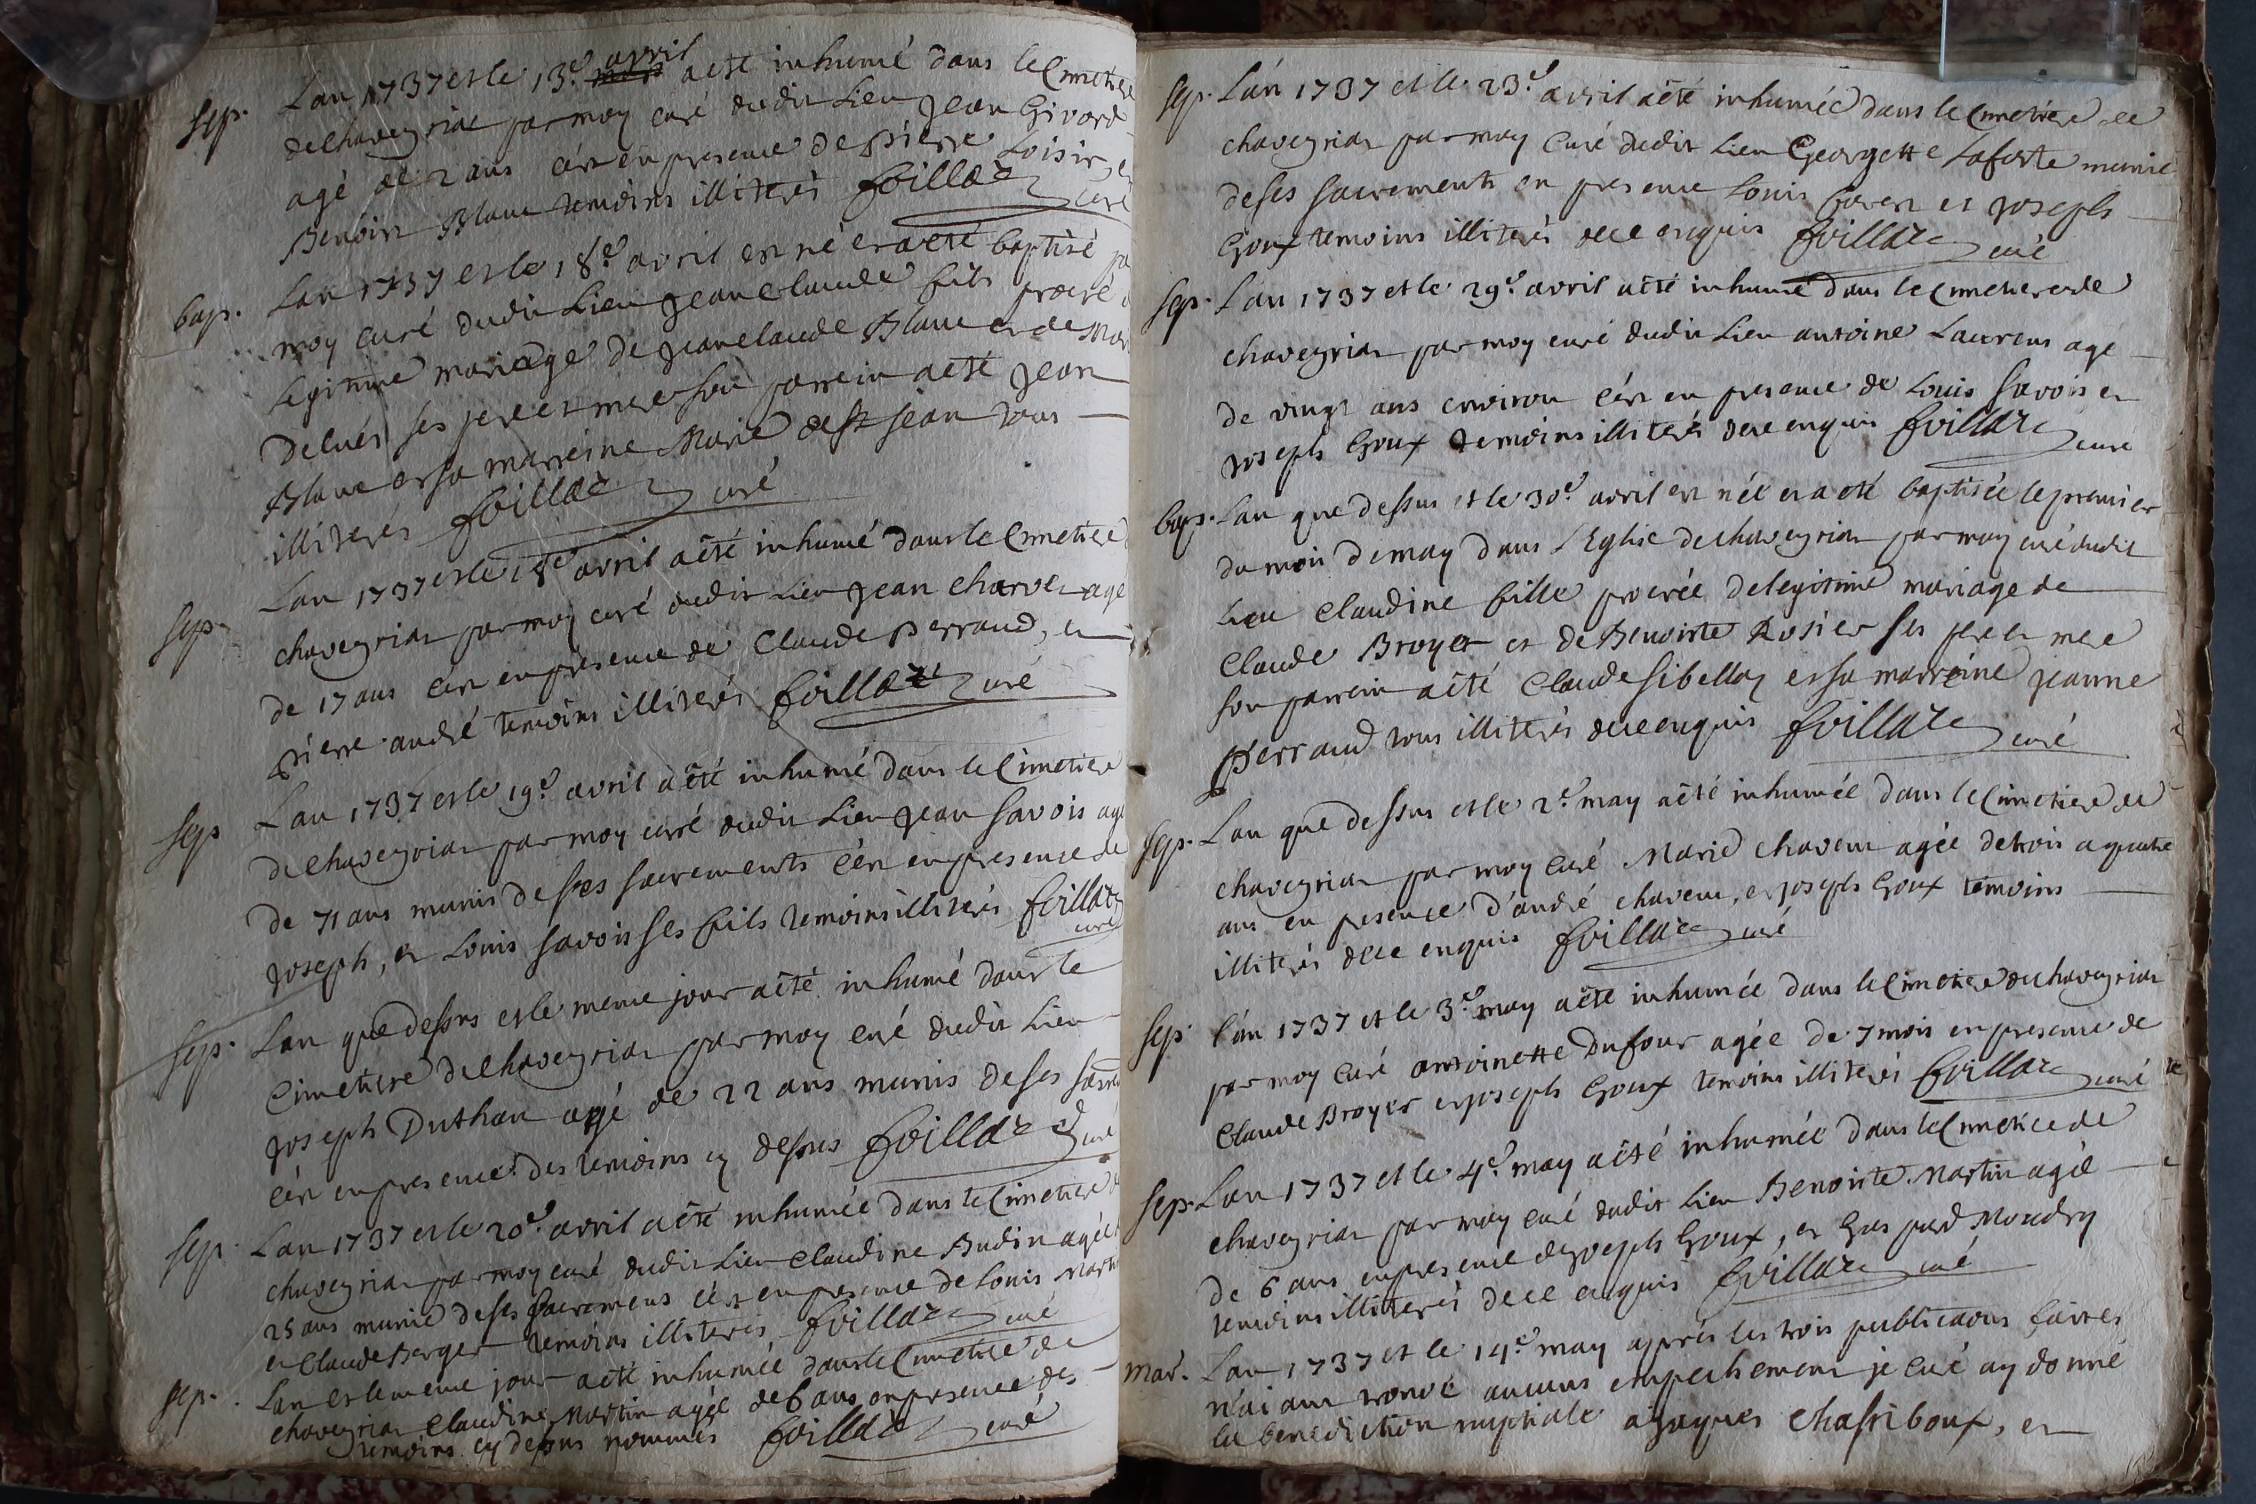 sep. Lan 1737 et le 13.e avril a été inhumé dans le Cimetiere
de Chaveyriat par moy curé dudit Lieu Jean Givord
agé de 2 ans c'ést en presence de Pierre Loisir et
Benoist Blanc temoins illiterés foillar curé
bap. Lan 1737 et le 18.e avril est né et a eté baptisé par
moy curé dudit Lieu Jean claude fils procré
legitime mariage de Jean claude Blanc et de
ses pere et mere son parrein a eté Jean
Blanc et sa marreine Marie de st jean tous
illiterés foillar curé
sep. Lan 1737 et le 18.e avril a été inhumé dans le Cimetiere
chaveyriat par moy curé dudit Lieu Jean charvet agé
de 17 ans c'ést en presence de Claude Perraud, et
Pierre andré temoins illiterés foillar curé
sep Lan 1737 et le 19.e avril a été inhumé dans le Cimetiere
de Chaveyriat par moy curé dudit Lieu Jean Savois agé
de 71 ans munis de ses sacrements c'ést en presence de
Joseph, et Louis Savois ses fils temoins illiterés foillar
curé
sep. Lan que dessus et le meme jour a été inhumé dans le
Cimetiere de Chaveyriat par moy curé dudit Lieu
Joseph Duthan agé de 22 ans munis de ses
c'ést en presence des temoins cy dessus foillar curé
sep. Lan 1737 et le 20.e avril a été inhumée dans le Cimetiere
chaveyriat par moy curé dudit Lieu Claudine Budin agée
25 ans munie de ses sacremens c'ést en presence de Louis Martin
et Claude Berger temoins illiterés foillar curé
sep. Lan et le meme jour a été inhumée dans le Cimetiere de
chaveyriat Claudine Martin agée de 6 ans en presence des
temoins cy dessus nommés foillar curé
sep. L'an 1737 et le 23.e avril a été inhumée dans le Cimetiere de
chaveyriat par moy Curé dudit Lieu Georgette Laforte munie
de ses sacrements en presence Louis et Joseph
Goux temoins illiterés de ce enquis foillar curé
sep. L'an 1737 et le 29.e avril a été inhumé dans le Cimetiere de
chaveyriat par moy curé dudit Lieu antoine Laurens agé
de vingt ans environ c'ést en presence de Louis Savois et
Joseph Goux temoins illiterés de ce enquis foillar curé
bap. Lan que dessus et le 30.e avril est née et a eté baptisée le premier
du mois de may dans l'Eglise de chaveyriat par moy curé dudit
Lieu Claudine fille procrée de legitime mariage de
Claude Broyer et de Benoiste Rosier ses pere et mere
son parrein a été Claude Sibellas et sa marréine Jeanne
Perraud tous illiterés de ce enquis foillar curé
sep. Lan que dessus et le 2.e may a été inhumée dans le Cimetiere de
chaveyriat par moy Curé Marie chavent agée de trois a quatre
ans en presence d'andré chavent, et Joseph Goux temoins
illiterés de ce enquis foillar curé
sep. l'an 1737 et le 3.e may a été inhumée dans le Cimetiere de chaveyriat
par moy Curé antoinette Dufour agée de 7 mois en presence de
Claude Broyer et Joseph Goux temoins illiterés foillar curé
sep. Lan 1737 et le 4.e may a été inhumée dans le Cimetiere de
chaveyriat par moy curé dudit Lieu Benoiste Martin agée
de 6 ans en presence de Joseph Goux, et Gaspard Moudry
temoins illiterés de ce enquis foillar curé
mar. Lan 1737 et le 14.e may après les trois publications faittes
n'aiant trouvé aucuns empechement je curé ay donné
la benediction nuptiale a Jaques Chassiboux, et